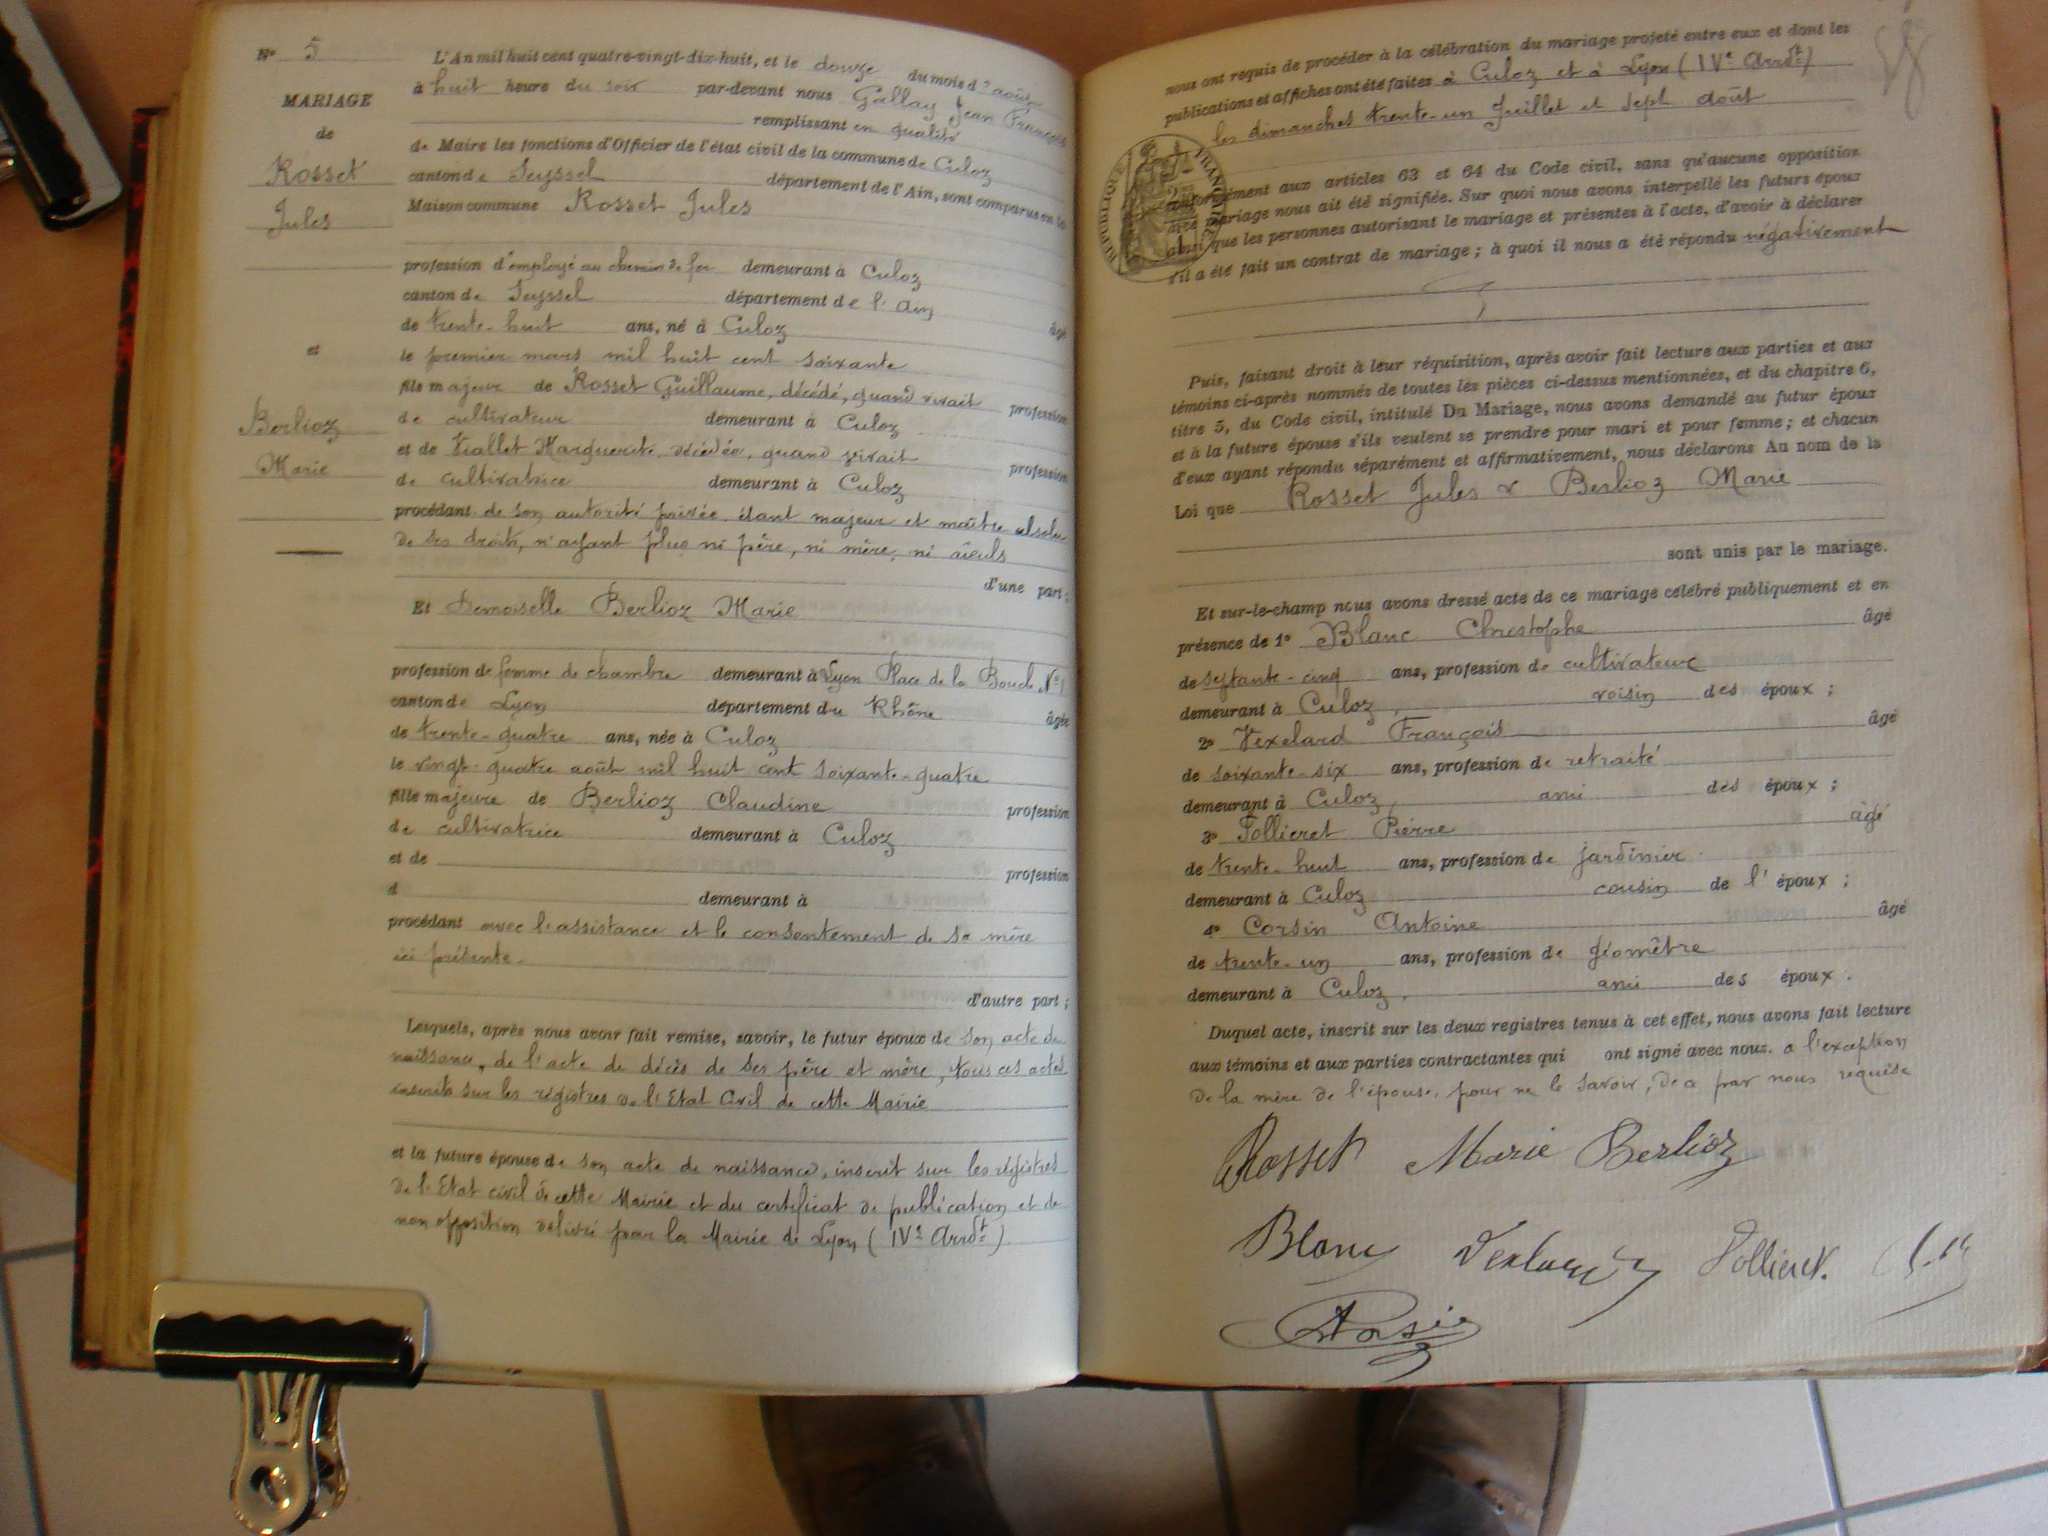 No 5
MARIAGE
de
Rosset
Jules
et
Berlioz
Marie
L'An mil huit cent quatre-vingt-dix-huit, et le douze du mois d'août
à huit heure du soir par-devant nous Gallay Jean François
remplissant en qualité
de Maire les fonctions d'Officier de l'état civil de la commune de Culoz
canton de Seyssel département de l'Ain, sont comparus en la
Maison commune Rosset Jules
profession d'employé au chemin de fer demeurant à Culoz
canton de Seyssel département de l'Ain âgé
de trente-huit ans, né à Culoz
le premier mars mil huit cent soixante
fils majeur de Rosset Guillaume, décédé, quand vivait profession
de cultivateur demeurant à Culoz
et de Viallet Marguerite, décédée, quand vivait profession
de cultivatrice demeurant à Culoz
procédant de son autorité privée étant majeur et maître absolu
de ses droits, n'ayant plus ni père, ni mère, ni aïeuls
d'une part;
Et Demoiselle Berlioz Marie
profession de femme de chambre demeurant à Lyon Place de la Boucle No 1
canton de Lyon département du Rhône âgée
de trente-quatre ans, née à Culoz
le vingt-quatre août mil huit cent soixante-quatre
fille majeure de Berlioz Claudine profession
de cultivatrice demeurant à Culoz
et de profession
d demeurant à
procédant avec l'assistance et le consentement de sa mère
ici présente.
d'autre part;
Lesquels, après nous avoir fait remise, savoir, le futur époux de son acte de
naissance, de l'acte de décès de ses père et mère, tous ces actes
inscrits sur les régistres de l'Etat Civil de cette Mairie
et la future épouse de son acte de naissance, inscrit sur les régistres
de l'Etat civil de cette Mairie et du certificat de publication et de
non opposition délivré par la Mairie de Lyon (IVe Arrdt)
nous ont requis de procéder à la célébration du mariage projeté entre eux et dont les
publications et affiches ont été faites à Culoz et à Lyon (IVe Arrdt)
les dimanches trente-un Juillet et sept août
RÉPUBLIQUE FRANÇAISE
conformément aux articles 63 et 64 du Code civil, sans qu'aucune opposition
audit mariage nous ait été signifiée. Sur quoi nous avons interpellé les futurs époux
ainsi que les personnes autorisant le mariage et présentes à l'acte, d'avoir à déclarer
s'il a été fait un contrat de mariage; à quoi il nous a été répondu négativement
Puis, faisant droit à leur réquisition, après avoir fait lecture aux parties et aux
témoins ci-après nommés de toutes les pièces ci-dessus mentionnées, et du chapitre 6,
titre 5, du Code civil, intitulé Du Mariage, nous avons demandé au futur époux
et à la future épouse s'ils veulent se prendre pour mari et pour femme; et chacun
d'eux ayant répondu séparément et affirmativement, nous déclarons Au nom de la
Loi que Rosset Jules & Berlioz Marie
sont unis par le mariage.
Et sur-le-champ nous avons dressé acte de ce mariage célébré publiquement et en
présence de 1º Blanc Christophe âgé
de septante-cinq ans, profession de cultivateur
demeurant à Culoz, voisin des époux;
2º Vexelard François âgé
de soixante-six ans, profession de retraité
demeurant à Culoz, ami des époux;
3º Pollieret Pierre âgé
de trente-huit ans, profession de jardinier
demeurant à Culoz cousin de l'époux;
4º Corsin Antoine âgé
de trente-un ans, profession de géomètre
demeurant à Culoz, ami des époux.
Duquel acte, inscrit sur les deux registres tenus à cet effet, nous avons fait lecture
aux témoins et aux parties contractantes qui ont signé avec nous. a l'exception
de la mère de l'épouse, pour ne le savoir, de a par nous requise
Rosset Marie Berlioz
Blanc Pollieret.